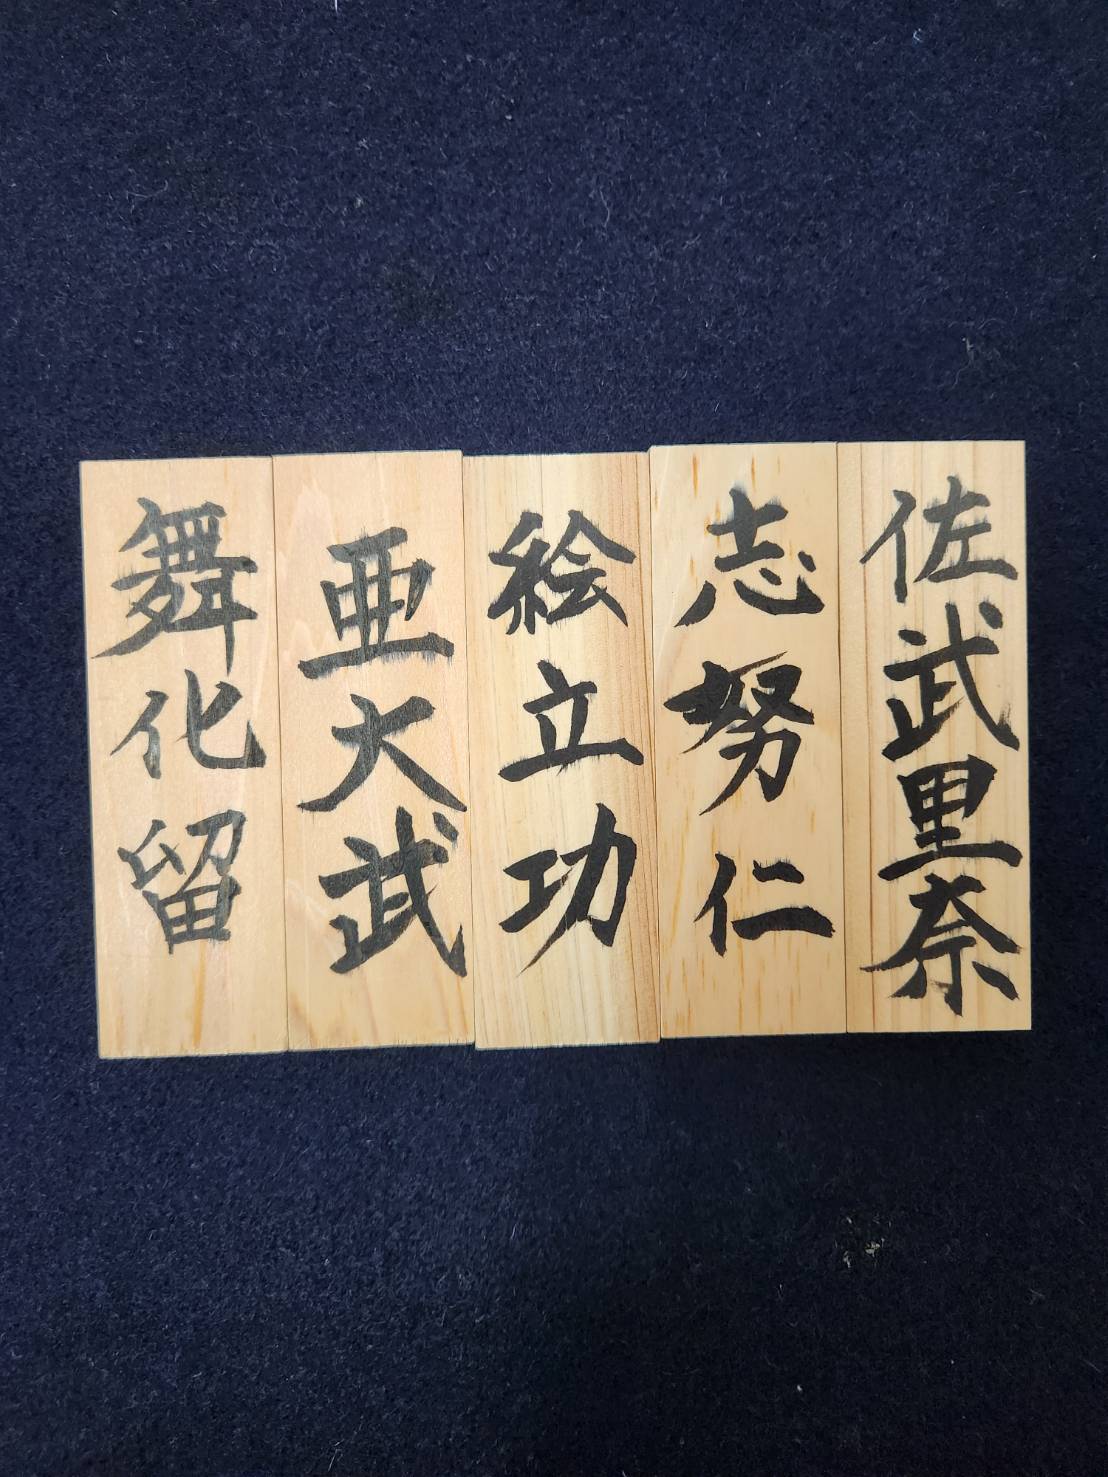 佐武里奈
志努仁
絵立功
亜大武
舞化留